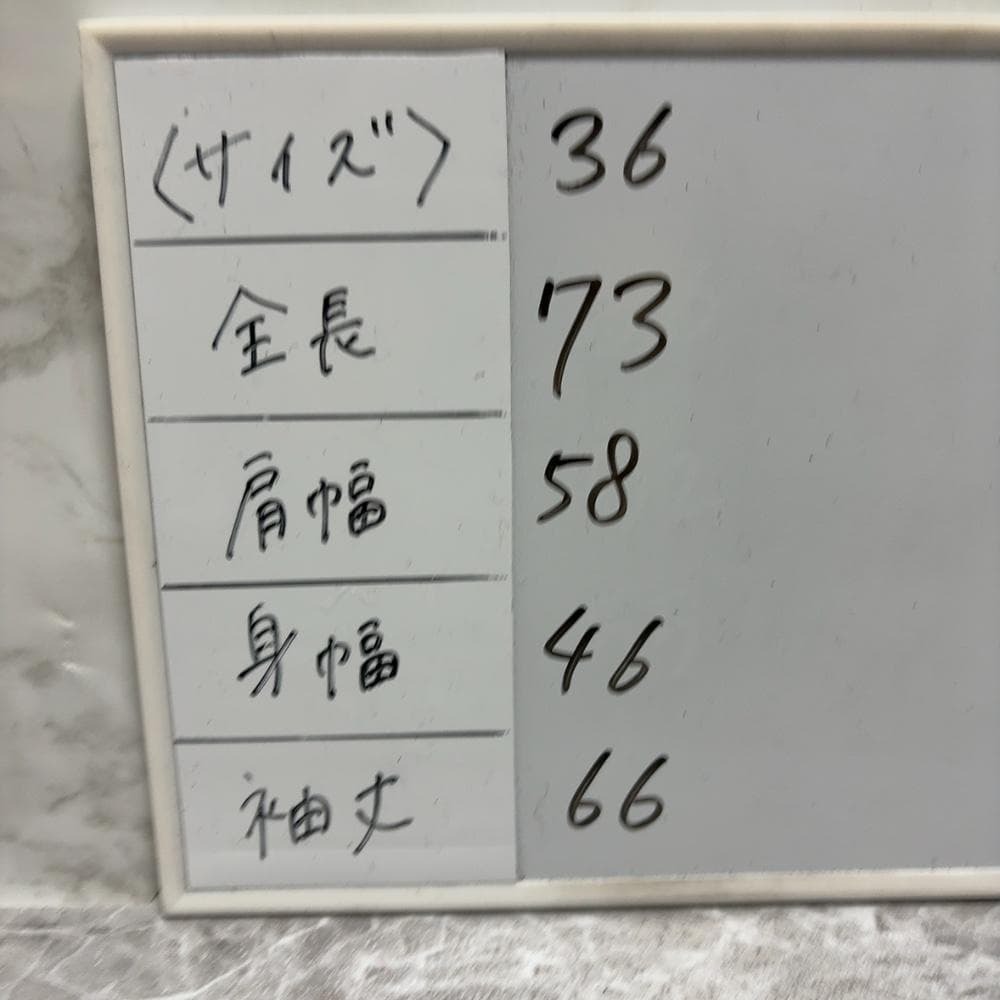 〈サイズ〉 36
全長 73
肩幅 58
身幅 46
袖丈 66